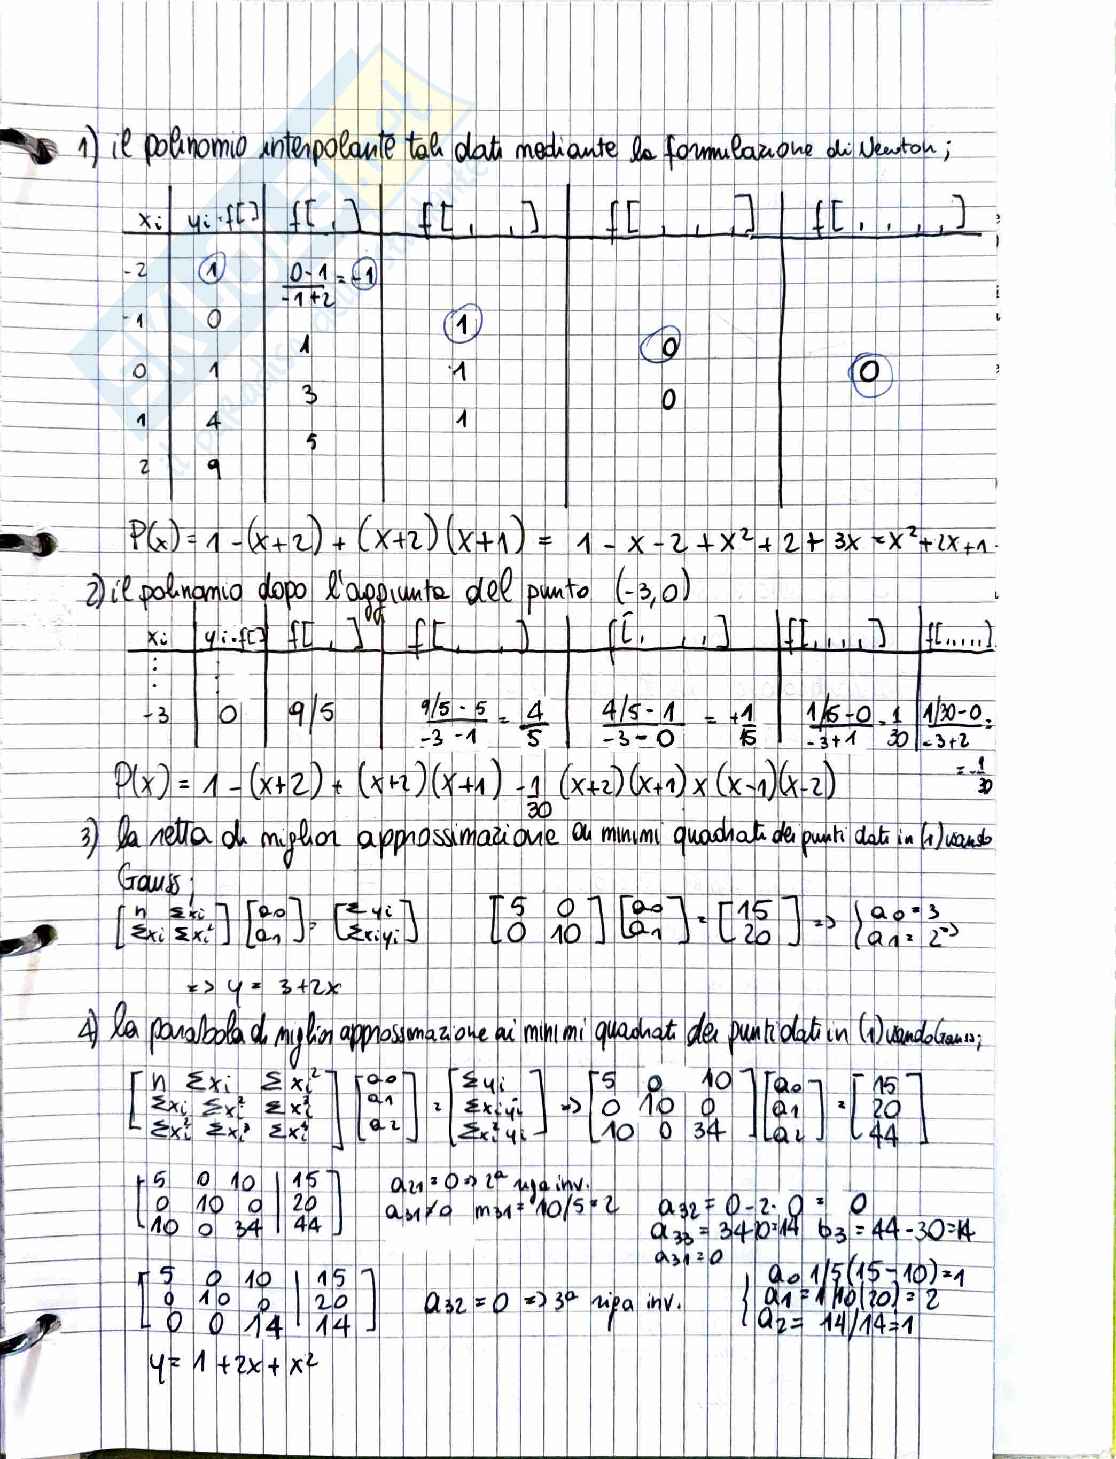 1) il polinomio interpolante tali dati mediante la formulazione di Newton;
xi yi=f[] f[ , ] f[ , , ] f[ , , , ] f[ , , , , ]
-2 1 0-1/-1+2 = -1
-1 0 1
1 0
0 1 1 0
3 0
1 4 1
5
2 9
P(x) = 1 - (x+2) + (x+2)(x+1) = 1 - x - 2 + x² + 2 + 3x = x² + 2x + 1
2) il polinomio dopo l'aggiunta del punto (-3,0)
xi yi=f[] f[ , ] f[ , , ] f[ , , , ] f[ , , , , ] f[ , , , , , ]
-3 0 9/5 9/5 - 5/-3 - 1 = 4/5 4/5 - 1/-3 - 0 = +1/15 1/15 - 0/-3+1 = 1/30 1/30 - 0/-3+2 =
= -1/30
P(x) = 1 - (x+2) + (x+2)(x+1) - 1/30 (x+2)(x+1) x (x-1)(x-2)
3) la retta di miglior approssimazione ai minimi quadrati dei punti dati in (1) usando
Gauss;
[n Σxi] [a0] = [Σyi] [5 0] [a0] = [15] => { a0 = 3
[Σxi Σxi²] [a1] [Σxiyi] [0 10] [a1] [20] a1 = 2 =>
=> y = 3+2x
4) la parabola di miglior approssimazione ai minimi quadrati dei punti dati in (1) usando Gauss;
[n Σxi Σxi²] [a0] = [Σyi] => [5 0 10] [a0] = [15]
[Σxi Σxi² Σxi³] [a1] [Σxiyi] [0 10 0] [a1] [20]
[Σxi² Σxi³ Σxi⁴] [a2] [Σxi²yi] [10 0 34] [a2] [44]
[5 0 10 | 15] a21 = 0 => 2ª riga inv.
[0 10 0 | 20] a31 ≠ 0 m31 = 10/5 = 2 a32 = 0 - 2· 0 = 0
[10 0 34 | 44] a33 = 34-20=14 b3 = 44 - 30 = 14
a31 = 0
[5 0 10 | 15] { a0 1/5(15-10) = 1
[0 10 0 | 20] a32 = 0 => 3ª riga inv. a1 = 1/10(20) = 2
[0 0 14 | 14] a2 = 14/14 = 1
y = 1 + 2x + x²